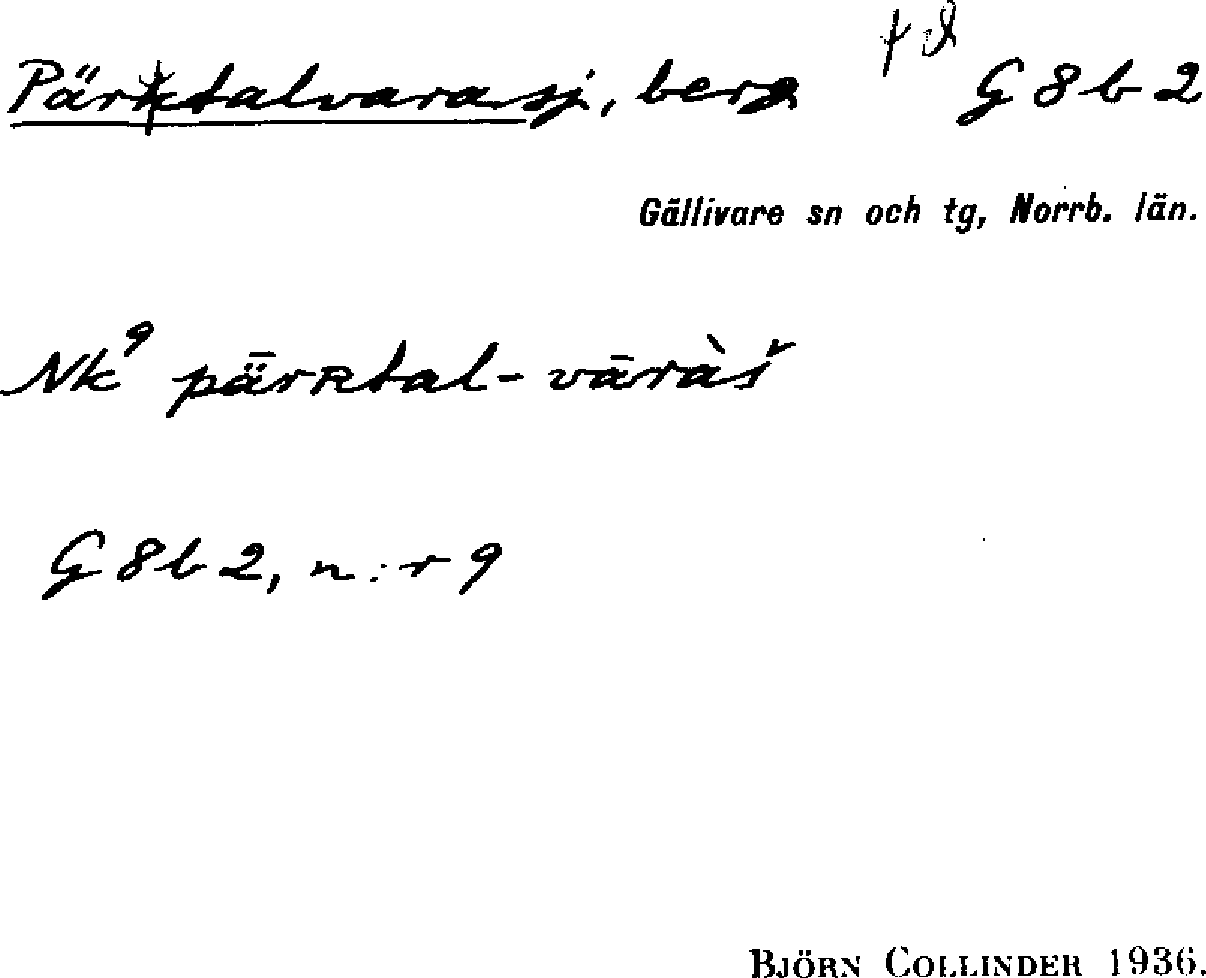 Pärktalvarasj, berg G 8 b 2
Gällivare sn och tg, Norrb. län.
Nk⁹ pǟrᴋtal-vāràš
G 8 b 2, n:r 9
BJÖRN COLLINDER 1936.